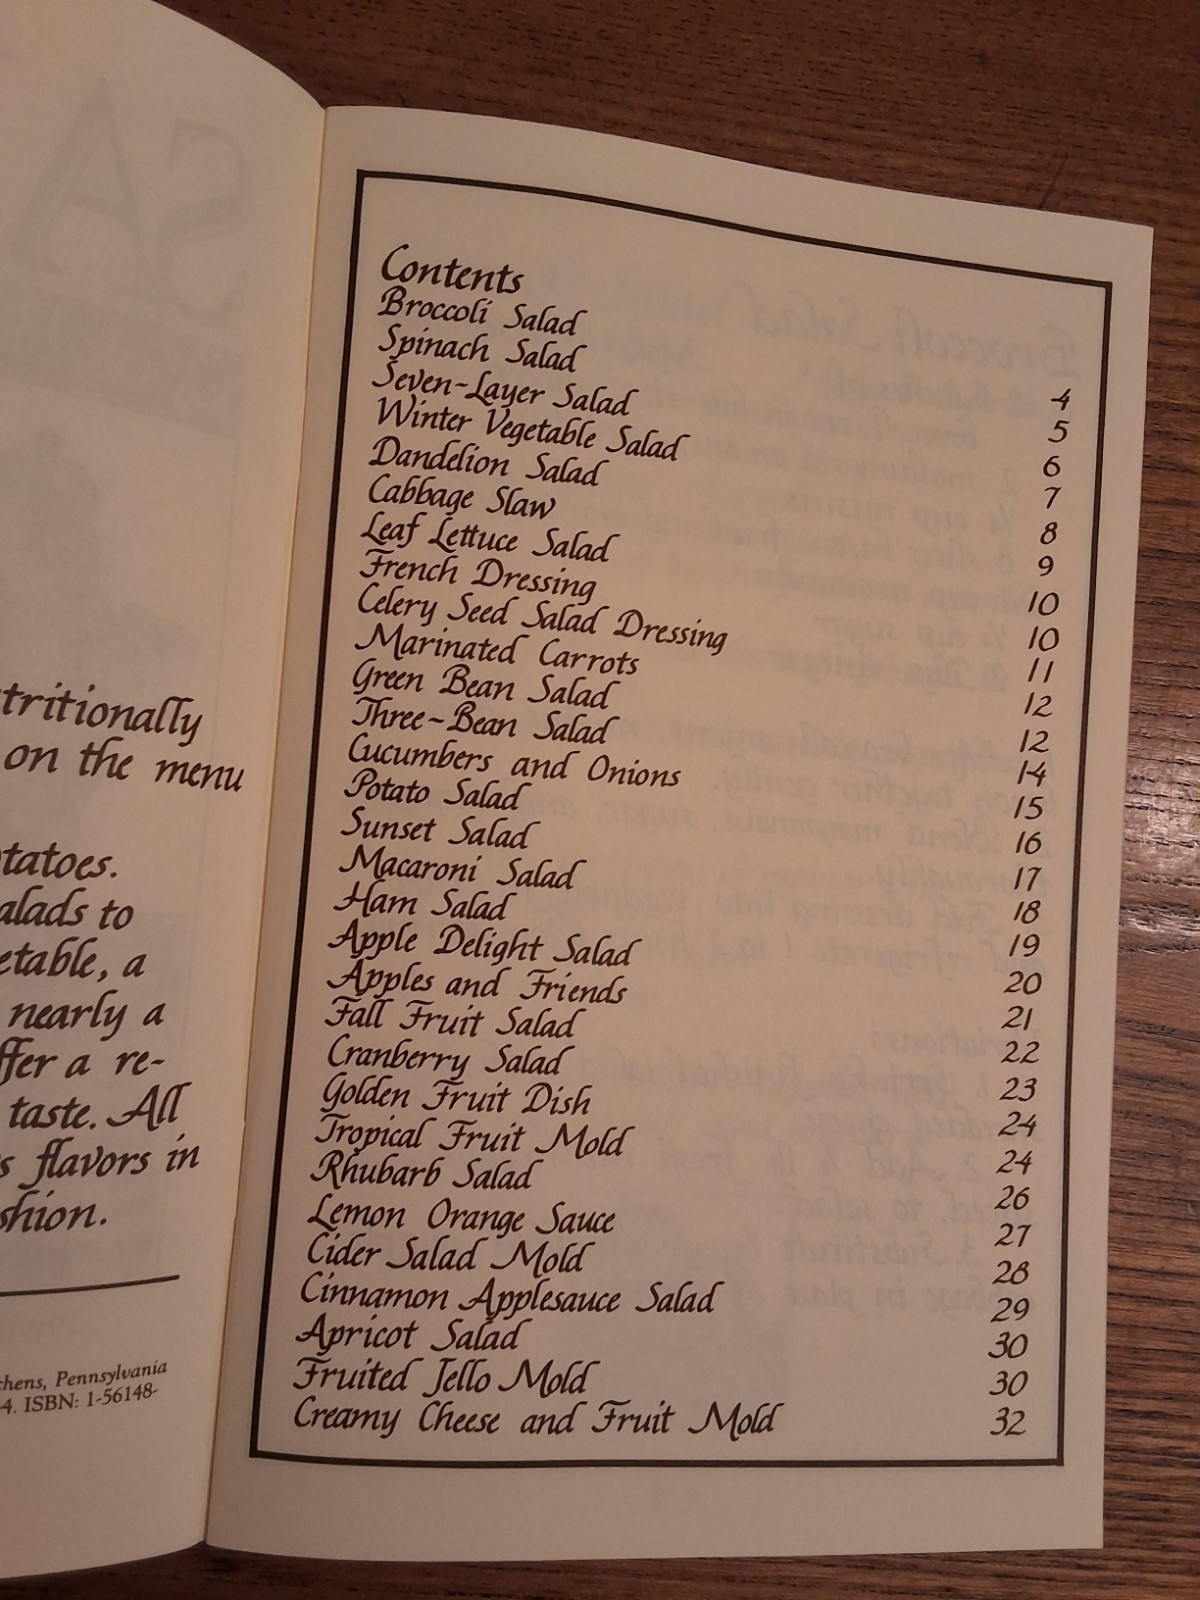 SA
tritionally
on the menu
tatoes.
alads to
etable, a
nearly a
ffer a re-
taste. All
s flavors in
shion.
chens, Pennsylvania
4. ISBN: 1-56148-
Contents
Broccoli Salad 4
Spinach Salad 5
Seven-Layer Salad 6
Winter Vegetable Salad 7
Dandelion Salad 8
Cabbage Slaw 9
Leaf Lettuce Salad 10
French Dressing 10
Celery Seed Salad Dressing 11
Marinated Carrots 12
Green Bean Salad 12
Three-Bean Salad 14
Cucumbers and Onions 15
Potato Salad 16
Sunset Salad 17
Macaroni Salad 18
Ham Salad 19
Apple Delight Salad 20
Apples and Friends 21
Fall Fruit Salad 22
Cranberry Salad 23
Golden Fruit Dish 24
Tropical Fruit Mold 24
Rhubarb Salad 26
Lemon Orange Sauce 27
Cider Salad Mold 28
Cinnamon Applesauce Salad 29
Apricot Salad 30
Fruited Jello Mold 30
Creamy Cheese and Fruit Mold 32